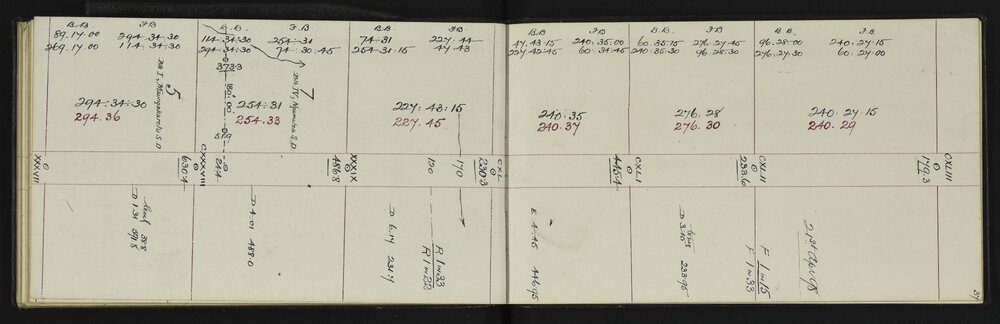 B.B. F.B
89.17.00 294.34.30
269.17.00 114.34.30
B.B. F.B
114.34.30 254.31
294.34.30 74.30.45
B.B. F.B.
74.31 227.44
254.31.15 47.43
B.B. F.B.
47.43.15 240.35.00
227.42.45 60.34.45
B.B. F.B
60.35.15 276.27.45
240.35.30 96.28.30
B.B. F.B.
96.28.00 240.27.15
276.27.30 60.27.00
5
7
373.3
180.00
51.9
294.34.30
294.36
254.31
254.33
227.43.15
227.45
240.35
240.37
276.28
276.30
240.27.15
240.29
XXXVII
630.4
CXXXVIII
24.4
486.8
XXXIX
150
170
230.3
CXL
445.4
CXLI
233.6
CXLII
179.3
CXLIII
D 1.31
D 4.01 488.0
D 6.14 231.7
R 1 in 33
R 1 in 22
E 4.45 446.95
D 3.15 233.95
F 1 in 15
F 1 in 33
39